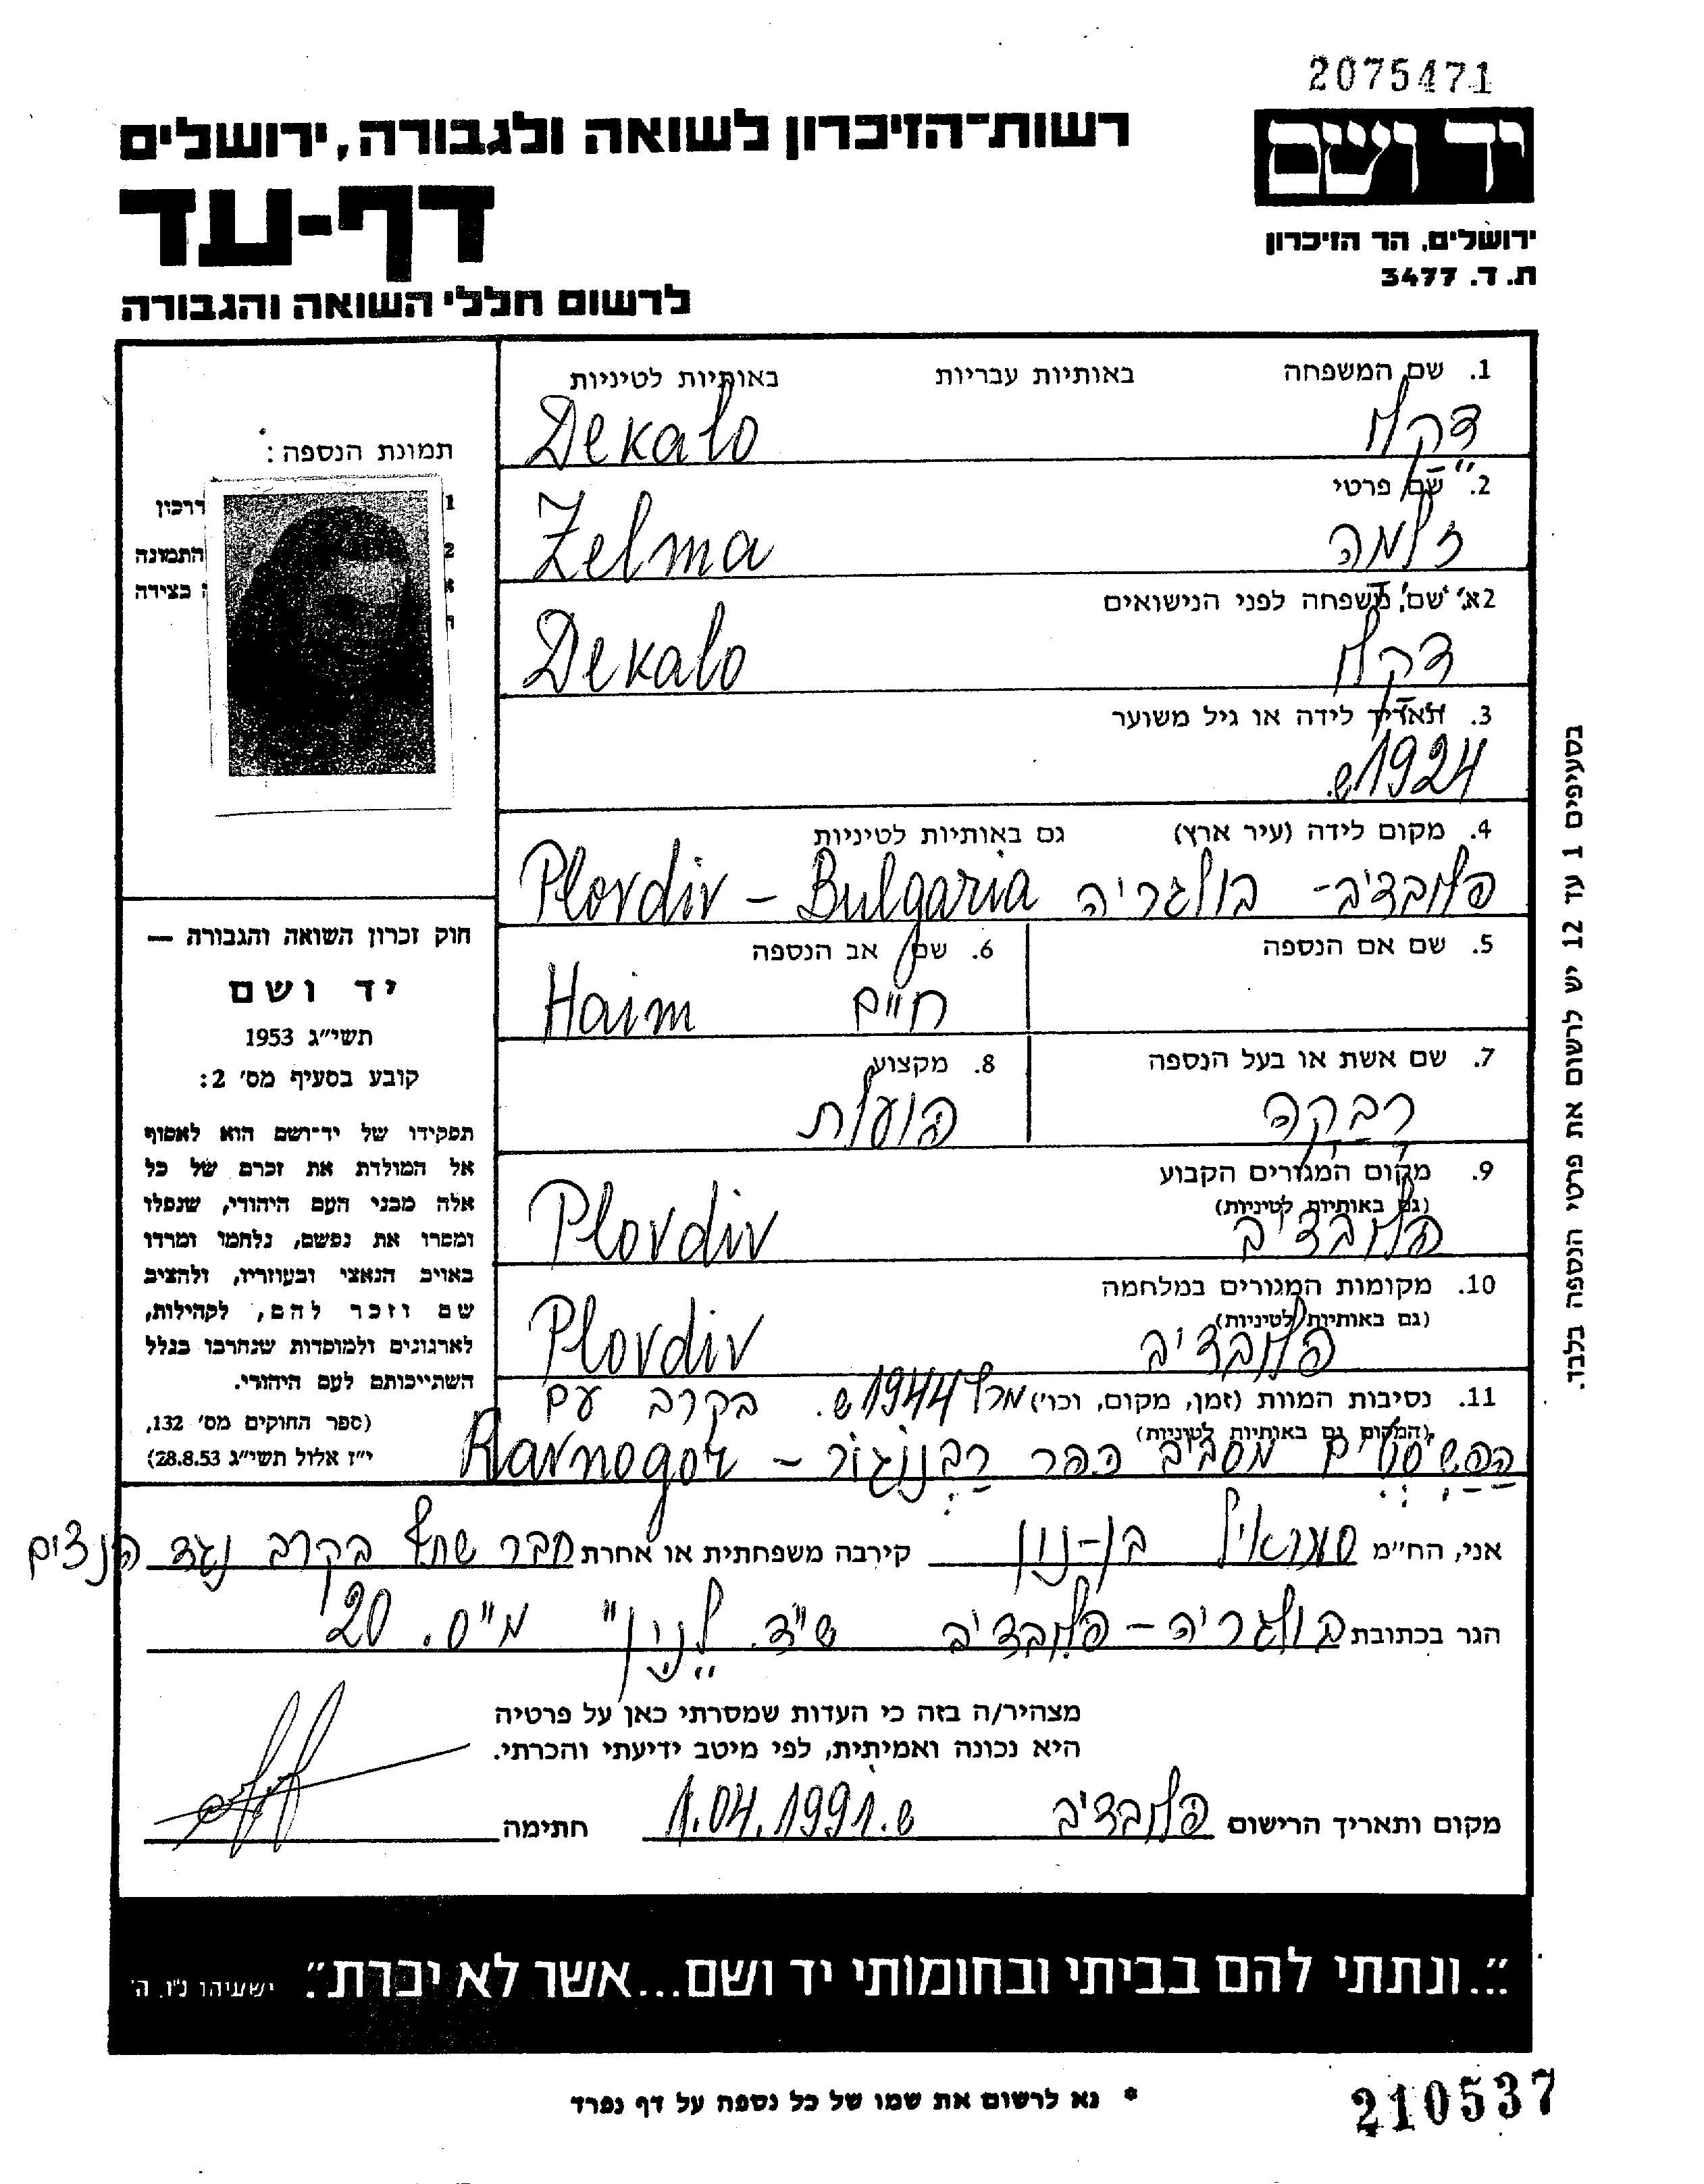 2075471
רשות־הזיכרון לשואה ולגבורה, ירושלים
יד ושם
דף-עד
ירושלים, הר הזיכרון
ת. ד. 3477
לרשום חללי השואה והגבורה
1. שם המשפחה באותיות עבריות באותיות לטיניות
דקלו Dekalo
2. שם פרטי
זלמה Zelma
2א. שם משפחה לפני הנישואים
דקלו Dekalo
3. תאריך לידה או גיל משוער
1924 ש.
4. מקום לידה (עיר ארץ) גם באותיות לטיניות
פלובדיב - בולגריה Plovdiv - Bulgaria
5. שם אם הנספה
6. שם אב הנספה
חיים Haim
7. שם אשת או בעל הנספה
רבקה
8. מקצוע
פועלת
9. מקום המגורים הקבוע
(גם באותיות לטיניות)
פלובדיב Plovdiv
10. מקומות המגורים במלחמה
(גם באותיות לטיניות)
פלובדיב Plovdiv
11. נסיבות המוות (זמן, מקום, וכו') מרץ 1944 ש. בקרב עם
(המקום גם באותיות לטיניות)
הפשיסטים מסביב הכפר רבנוגור - Ravnogor
תמונת הנספה:
1 דרכון
2 התמונה
בצידה
חוק זכרון השואה והגבורה —
יד ושם
תשי״ג 1953
קובע בסעיף מס' 2:
תפקידו של יד־ושם הוא לאסוף
אל המולדת את זכרם של כל
אלה מבני העם היהודי, שנפלו
ומסרו את נפשם, נלחמו ומרדו
באויב הנאצי ובעוזריו, ולהציב
שם וזכר להם, לקהילות,
לארגונים ולמוסדות שנחרבו בגלל
השתייכותם לעם היהודי.
(ספר החוקים מס' 132,
י״ז אלול תשי״ג 28.8.53)
בסעיפים 1 עד 12 יש לרשום את פרטי הנספה בלבד.
אני, הח״מ בן-נון קירבה משפחתית או אחרת חבר שותף בקרב נגד הנצים
הגר בכתובת בולגריה - פלובדיב ש"ד. "לנין" מ"ס. 20
מצהיר/ה בזה כי העדות שמסרתי כאן על פרטיה
היא נכונה ואמיתית, לפי מיטב ידיעתי והכרתי.
מקום ותאריך הרישום פלובדיב 1.04.1991 ש. חתימה
"...ונתתי להם בביתי ובחומותי יד ושם...אשר לא יכרת". ישעיהו נ״ו, ה'
* נא לרשום את שמו של כל נספה על דף נפרד
210537